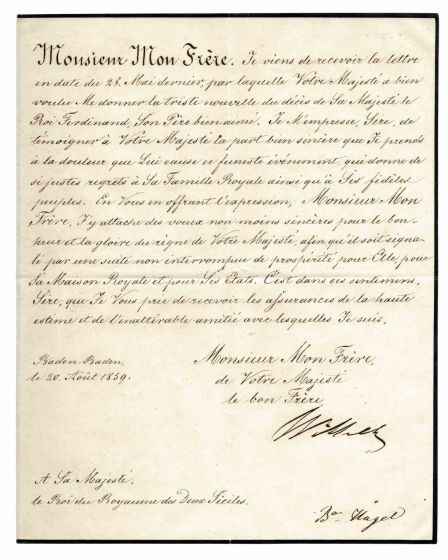 Monsieur Mon Frère. Je viens de recevoir la lettre
en date du 28. Mai dernier, par laquelle Votre Majesté a bien
voulu Me donner la triste nouvelle du décès de Sa Majesté le
Roi Ferdinand, Son Père bien aimé. Je M'empresse, Sire, de
témoigner à Votre Majesté la part bien sincère que Je prends
à la douleur que Lui cause ce funeste événement, qui donne de
si justes regrets à Sa Famille Royale ainsi qu'à Ses fidèles
peuples. En Vous en offrant l'expression, Monsieur Mon
Frère, J'y attache des voeux non moins sincères pour le bon-
heur et la gloire du règne de Votre Majesté, afin qu'il soit signa-
lé par une suite non interrompue de prospérité pour Elle, pour
Sa Maison Royale et pour Ses Etats. C'est dans ces sentimens,
Sire, que Je Vous prie de recevoir les assurances de la haute
estime et de l'inaltérable amitié avec lesquelles Je suis,
Monsieur Mon Frère,
de Votre Majesté
le bon Frère
Baden-Baden,
le 20. Août 1859.
A Sa Majesté,
le Roi du Royaume des Deux Siciles.
Bon Hügel